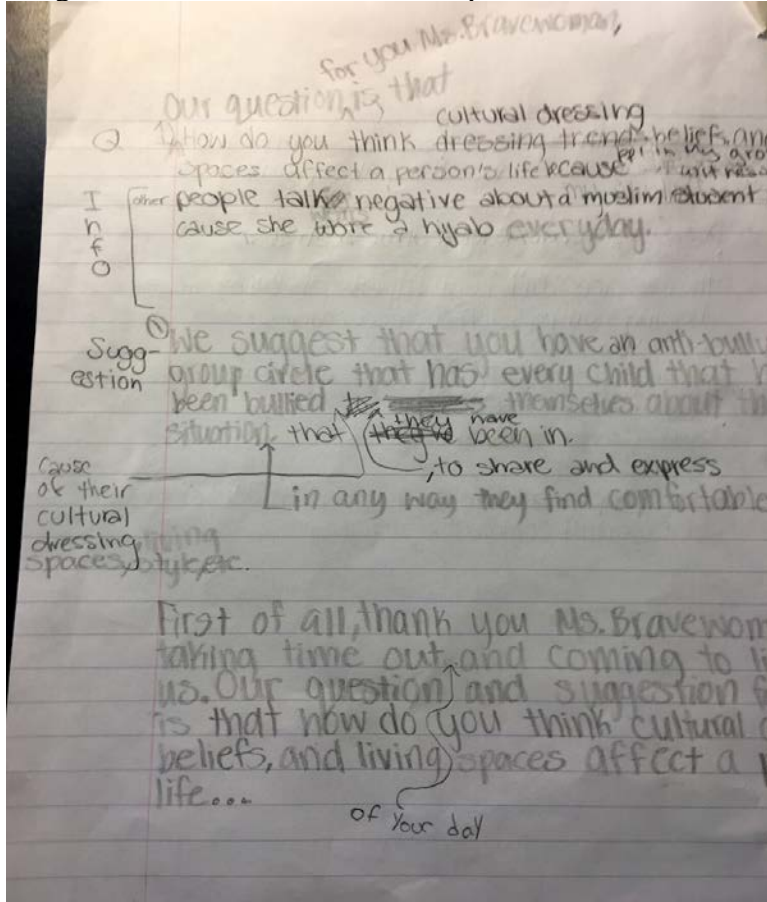 for you Ms. Bravewoman,
Our question is that
cultural dressing
Q 1) How do you think dressing trend, belief, an
spaces affect a person's life because in my gro
Info
other people talk negative about a muslim student
cause she wore a hyab everyday.
① We suggest that you have an anti-bully
Sugg-
estion
group circle that has every child that h
been bullied themselves about th
situation that they have been in.
they've
, to share and express
in any way they find comfortable
Cause
of their
cultural
dressing, living
spaces, style, etc.
First of all, thank you Ms. Bravewom
taking time out, and coming to li
us. Our question and suggestion f
is that how do you think cultural d
beliefs, and living spaces affect a p
life...
of your day